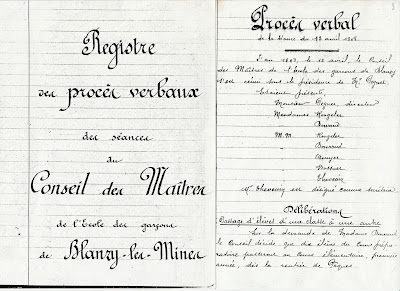 Registre
des procès verbaux
des séances
du
Conseil des Maîtres
de l'Ecole des garçons
de Blanzy-les-Mines
Procès verbal
de la séance du 13 avril
l'an 19 le 13 avril, le Conseil
des Maîtres de l'Ecole des garçons de Blanzy
s'est réuni sous la présidence de Mr Cognet
Etaient présents
Monsieur Cognet directeur
Mesdames Rougelet
MM. Rougelet
Bonnard
Thevenin
M. Thevenin est désigné comme secrétaire.
Délibérations
Passage d'élèves d'une classe à une autre
Sur la demande de Madame
le Conseil décide que dix élèves du Cours prépa-
ratoire passeront au Cours élémentaire, première
année, dès la rentrée de Pâques.